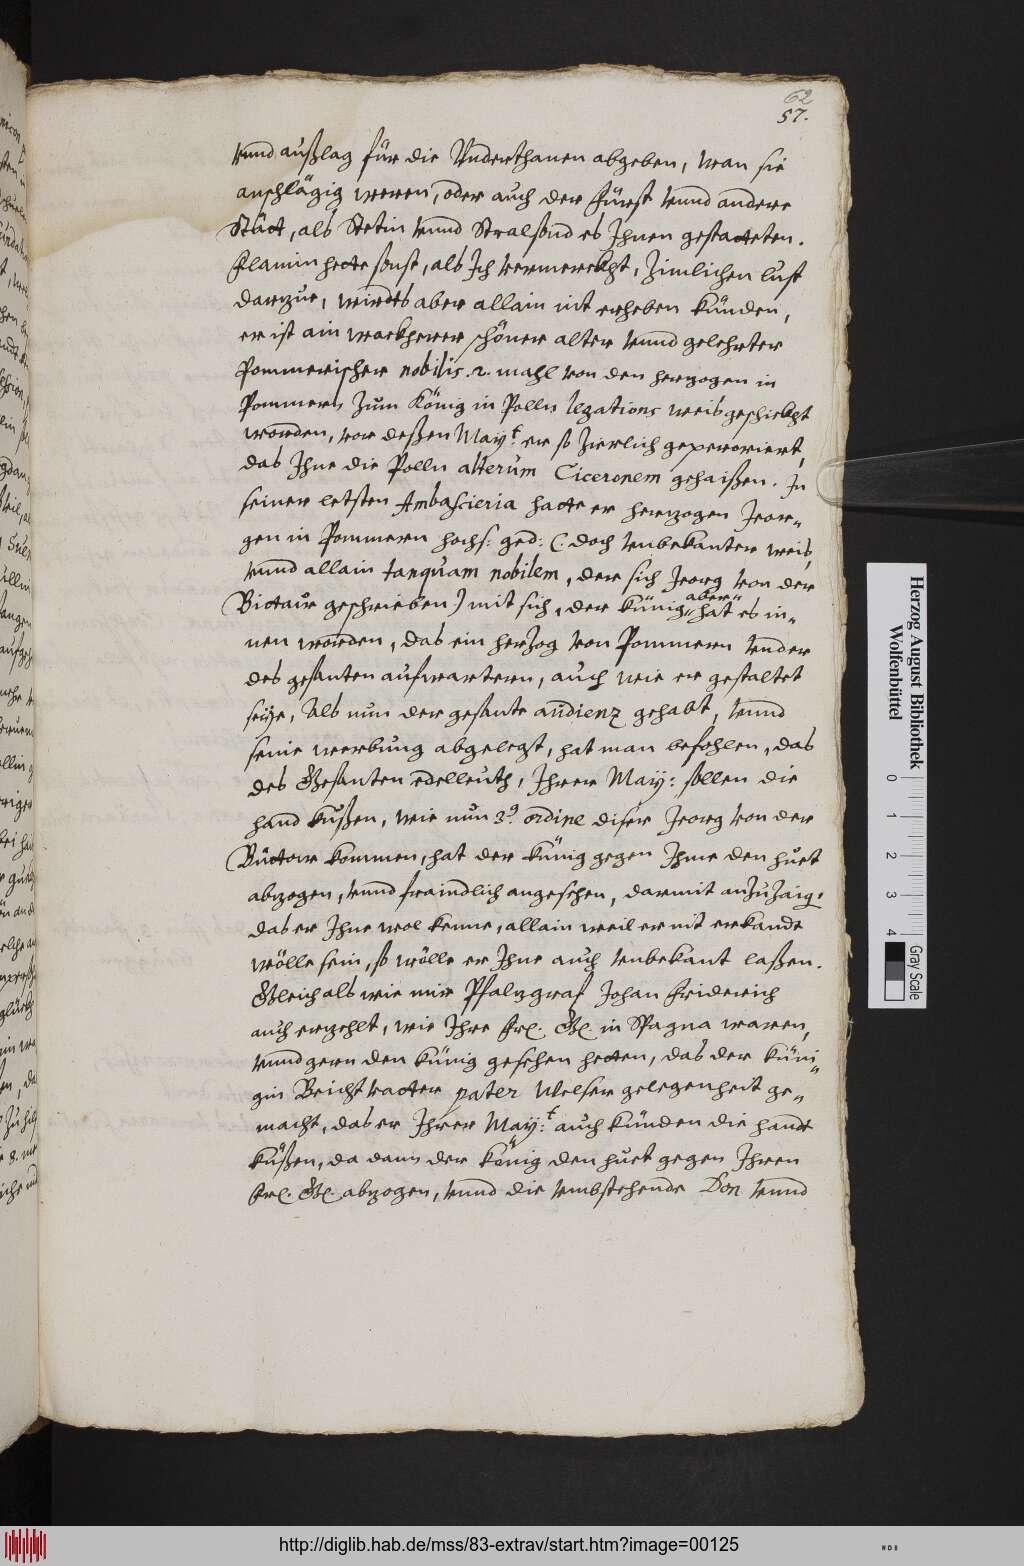 62
57.
vnnd außlag für die Vnderthanen abgeben, wan sie
anschlägig weren, oder auch der Fürst vnnd andere
Stätt, als Stetin vnnd Stralsund es Ihnen gestatteten.
Flamin hette sonst, als Ich vermerckht, zimlichen lust
darzue, wirdts aber allain nit erheben künden,
er ist ain wackherer schöner alter vnnd gelehrter
Pommerischer nobilis. 2. mahl von den herzogen in
Pommern zum König in Polln legations weis geschickht
worden, vor deßen May:t er so zierlich geperoriert,
das Ihne die Polln alterum Ciceronem gehaißen. In
seiner letsten Ambascieria hatte er herzogen Jeor„
gen in Pommern hochs: ged: (: doch vnbekanter weis,
vnnd allain tanquam nobilem, der sich Jeorg von der
Bictaur geschrieben) mit sich, der künig aber hat es in„
nen worden, das ein herzog von Pommern vnder
des gesanten aufwartern, auch wie er gestaltet
seye, Als nun der gesante audienz gehabt, vnnd
seine werbung abgelegt, hat man befohlen, das
des Gesanten edelleuth, Ihrer May: sollen die
hand kußen, wie nun 3º. ordine diser Jeorg von der
Büctow kommen, hat der künig gegen Ihme den huet
abzogen, vnnd fraindlich angesehen, darmit anzuzaig.
das er Ihne wol kenne, allain weil er nit erkandt
wölle sein, so wölle er Ihne auch vnbekant laßen.
Gleich als wie mir Pfalzgraf Johan Friderich
auch erzehlt, wie Ihre frl. Gl. in Spagna waren,
vnnd gern den künig gesehen hetten, das der küni„
gin Beichtvatter pater Welser gelegenheit ge„
macht, das er Ihrer May:t auch künden die handt
küßen, da dann der König den huet gegen Ihren
frl. Gl. abzogen, vnnd die vmbstehende Don vnnd
Herzog August Bibliothek
Wolfenbüttel
0 1 2 3 4
Gray Scale
http://diglib.hab.de/mss/83-extrav/start.htm?image=00125